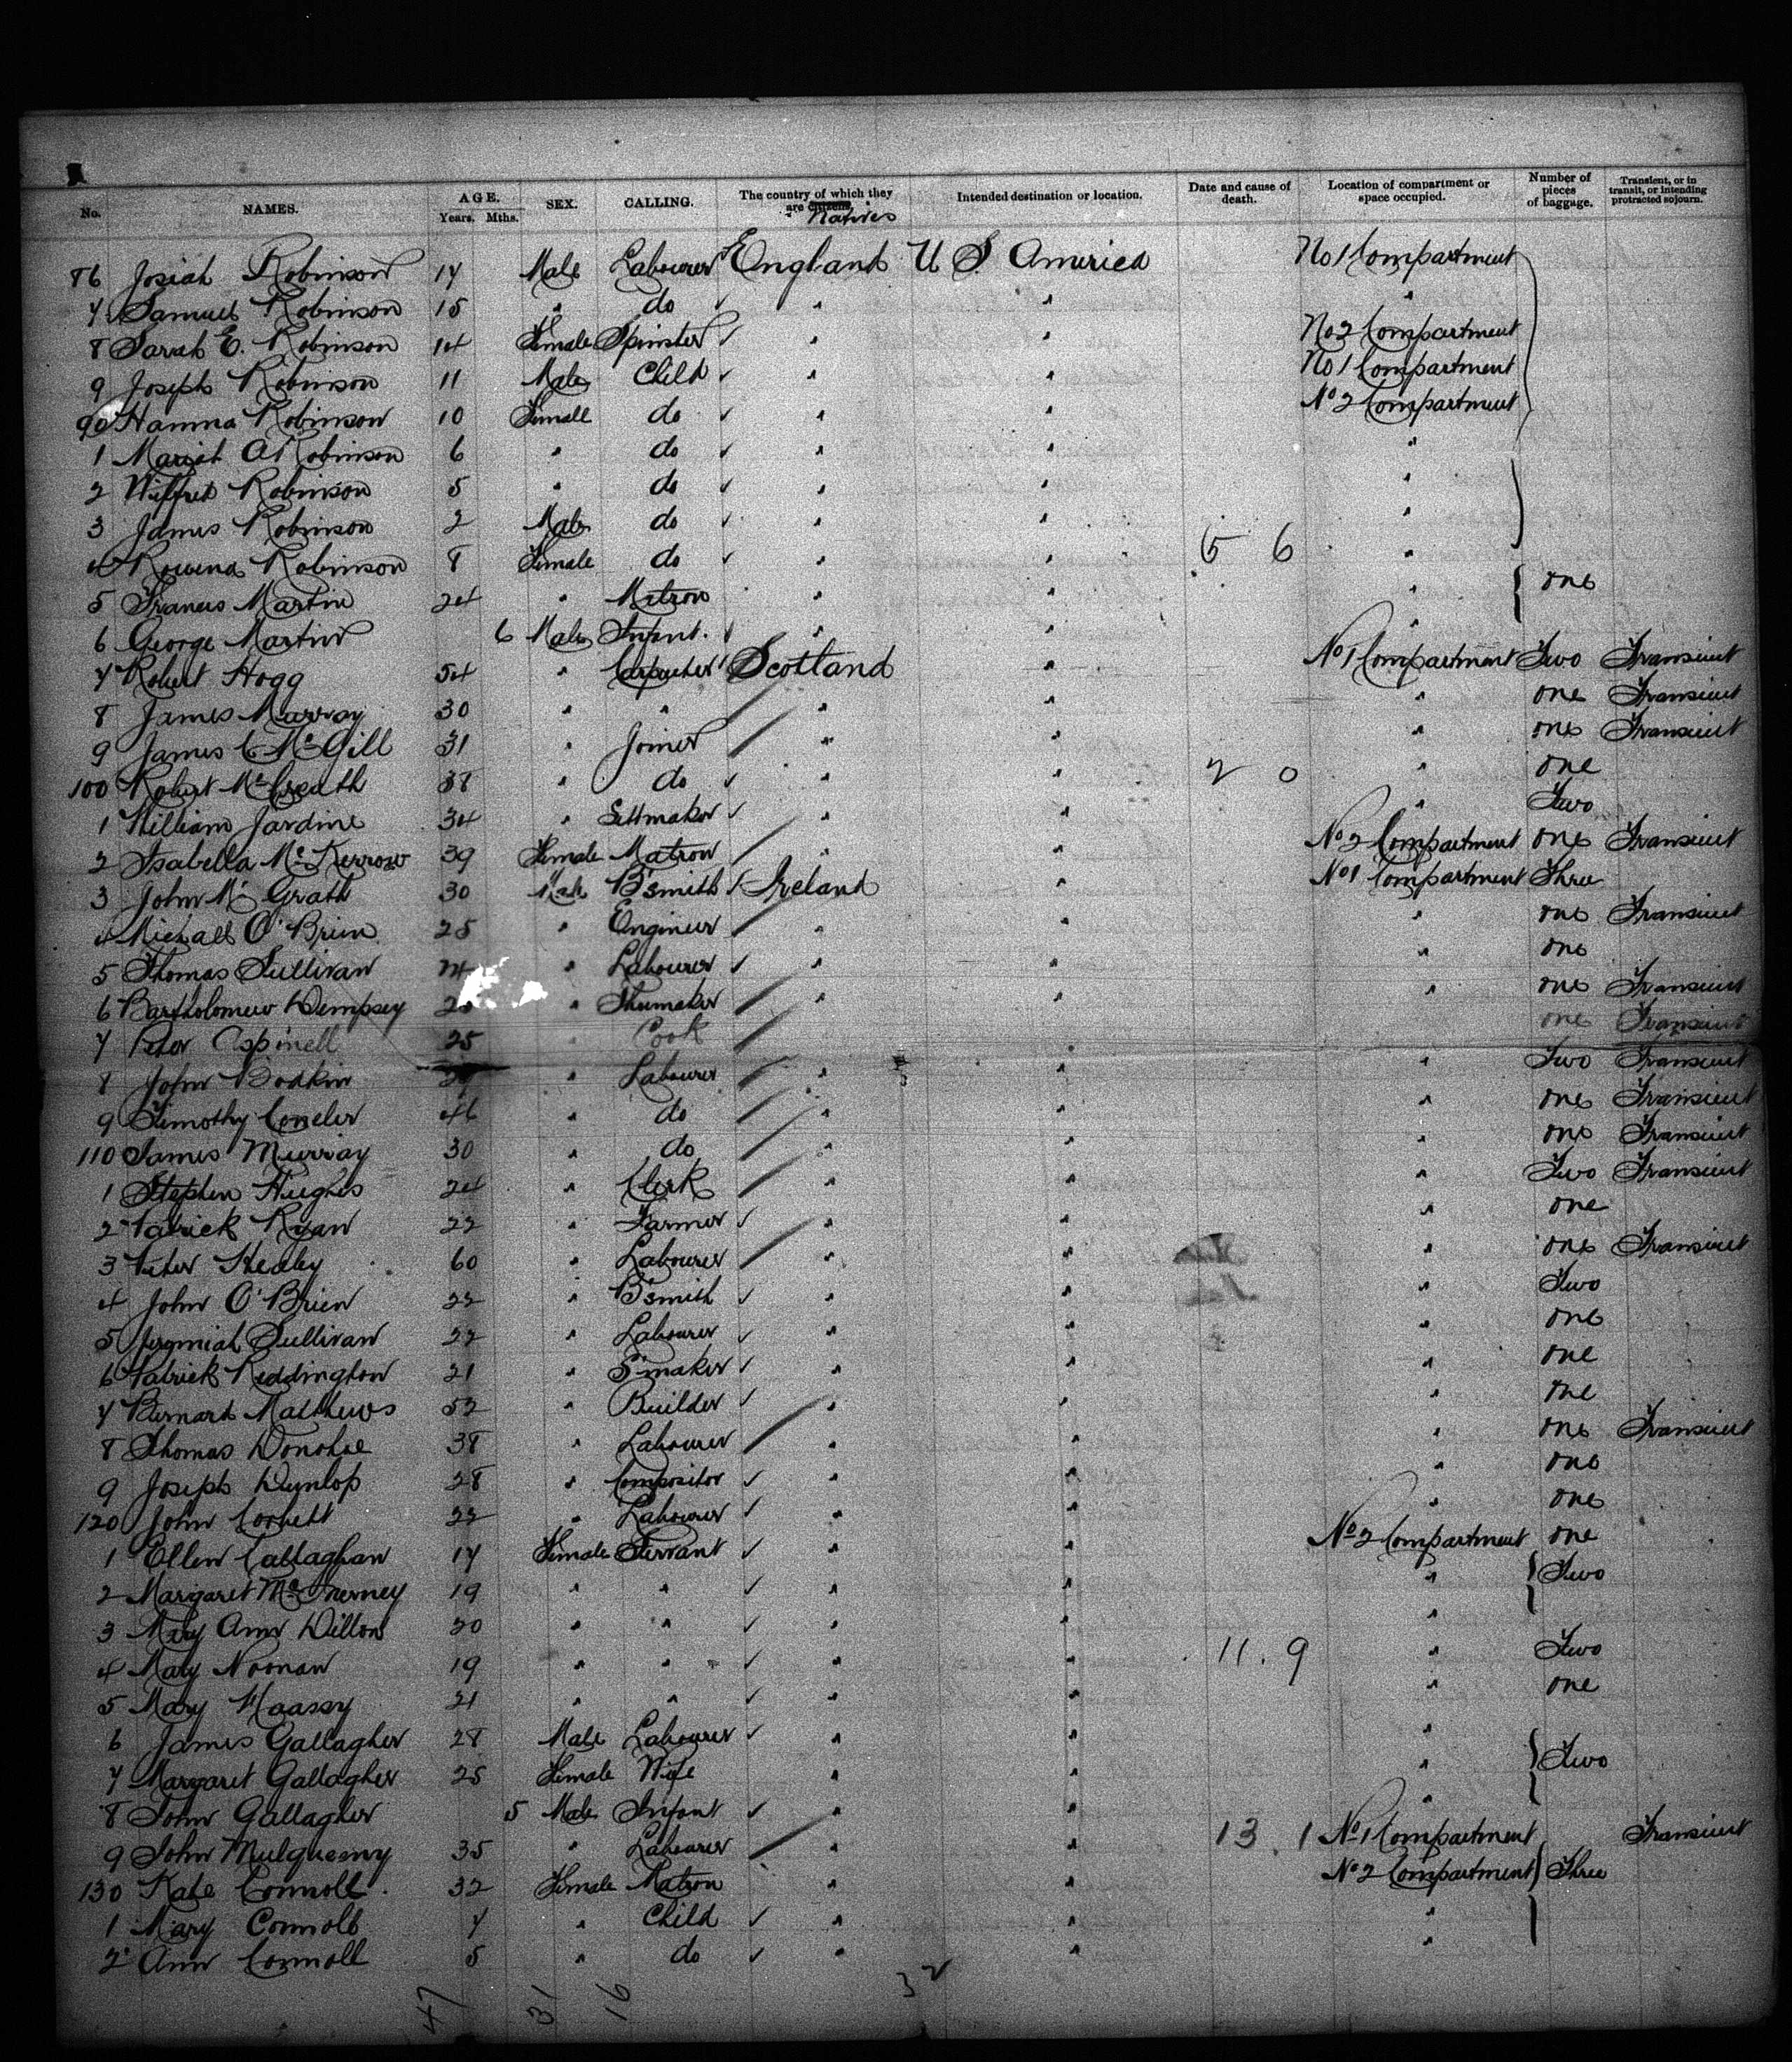 No. NAMES. AGE. Years. Mths. SEX. CALLING. The country of which they are citizens. Natives Intended destination or location. Date and cause of death. Location of compartment or space occupied. Number of pieces of baggage. Transient, or in transit, or intending protracted sojourn.
86 Josiah Robinson 17 Male Labourer England U S America No 1 Compartment
7 Samuel Robinson 15 " do " " "
8 Sarah E. Robinson 14 Female Spinster " " No 2 Compartment
9 Joseph Robinson 11 Male Child " " No 1 Compartment
90 Hanna Robinson 10 Female do " " No 2 Compartment
1 Mariah A Robinson 6 " do " " "
2 Wilfred Robinson 5 " do " " "
3 James Robinson 2 Male do " " "
4 Rowena Robinson 8 Female do " " 5 6 "
5 Frances Martin 24 " Matron " " " one
6 George Martin 6 Male Infant. " " "
7 Robert Hogg 54 " Carpenter Scotland " No 1 Compartment Two Transient
8 James Murray 30 " " " " " one Transient
9 James C McGill 31 " Joiner " " " one Transient
100 Robert McCreath 38 " do " " 2 0 " one
1 William Jardine 34 " Settmaker " " " Two
2 Isabella McKerrow 39 Female Matron " " No 2 Compartment one Transient
3 John McGrath 30 Male B'smith Ireland " No 1 Compartment Three
4 Michall O'Brien 25 " Engineer " " " one Transient
5 Thomas Sullivan " Labourer " " " one
6 Bartholomew Dempsey " Shumaker " " " one Transient
7 Peter Aspinell 25 " Cook one Transient
8 John Bodkin " Labourer " " " Two Transient
9 Timothy Coneler 46 " do " " " one Transient
110 James Murray 30 " do " " " one Transient
1 Stephen Hughes 24 " Clerk " " " Two Transient
2 Patrick Ryan 22 " Farmer " " " one
3 Peter Healey 60 " Labourer " " " one Transient
4 John O'Brien 22 " B'smith " " " Two
5 Jeremiah Sullivan 22 " Labourer " " " one
6 Patrick Reddington 21 " S'maker " " " one
7 Bernard Matthews 52 " Builder " " " one
8 Thomas Donohoe 38 " Labourer " " " one Transient
9 Joseph Dunlop 28 " Compositor " " " one
120 John Corbett 22 " Labourer " " " one
1 Ellen Callaghan 17 Female Servant " " No 2 Compartment one
2 Margaret McInerney 19 " " " " " Two
3 Mary Ann Dillon 20 " " " " "
4 Mary Noonan 19 " " " " 11 . 9 " Two
5 Mary Maassy 21 " " " " " one
6 James Gallagher 28 Male Labourer " " "
7 Margaret Gallagher 25 Female Wife " " " Two
8 John Gallagher 5 Male Infant " " "
9 John Mulqueeny 35 " Labourer " " 13 . 1 No 1 Compartment Transient
130 Kate Connoll 32 Female Matron " " No 2 Compartment Three
1 Mary Connoll 7 " Child " " "
2 Ann Connoll 5 " do " " "
47 31 16 32